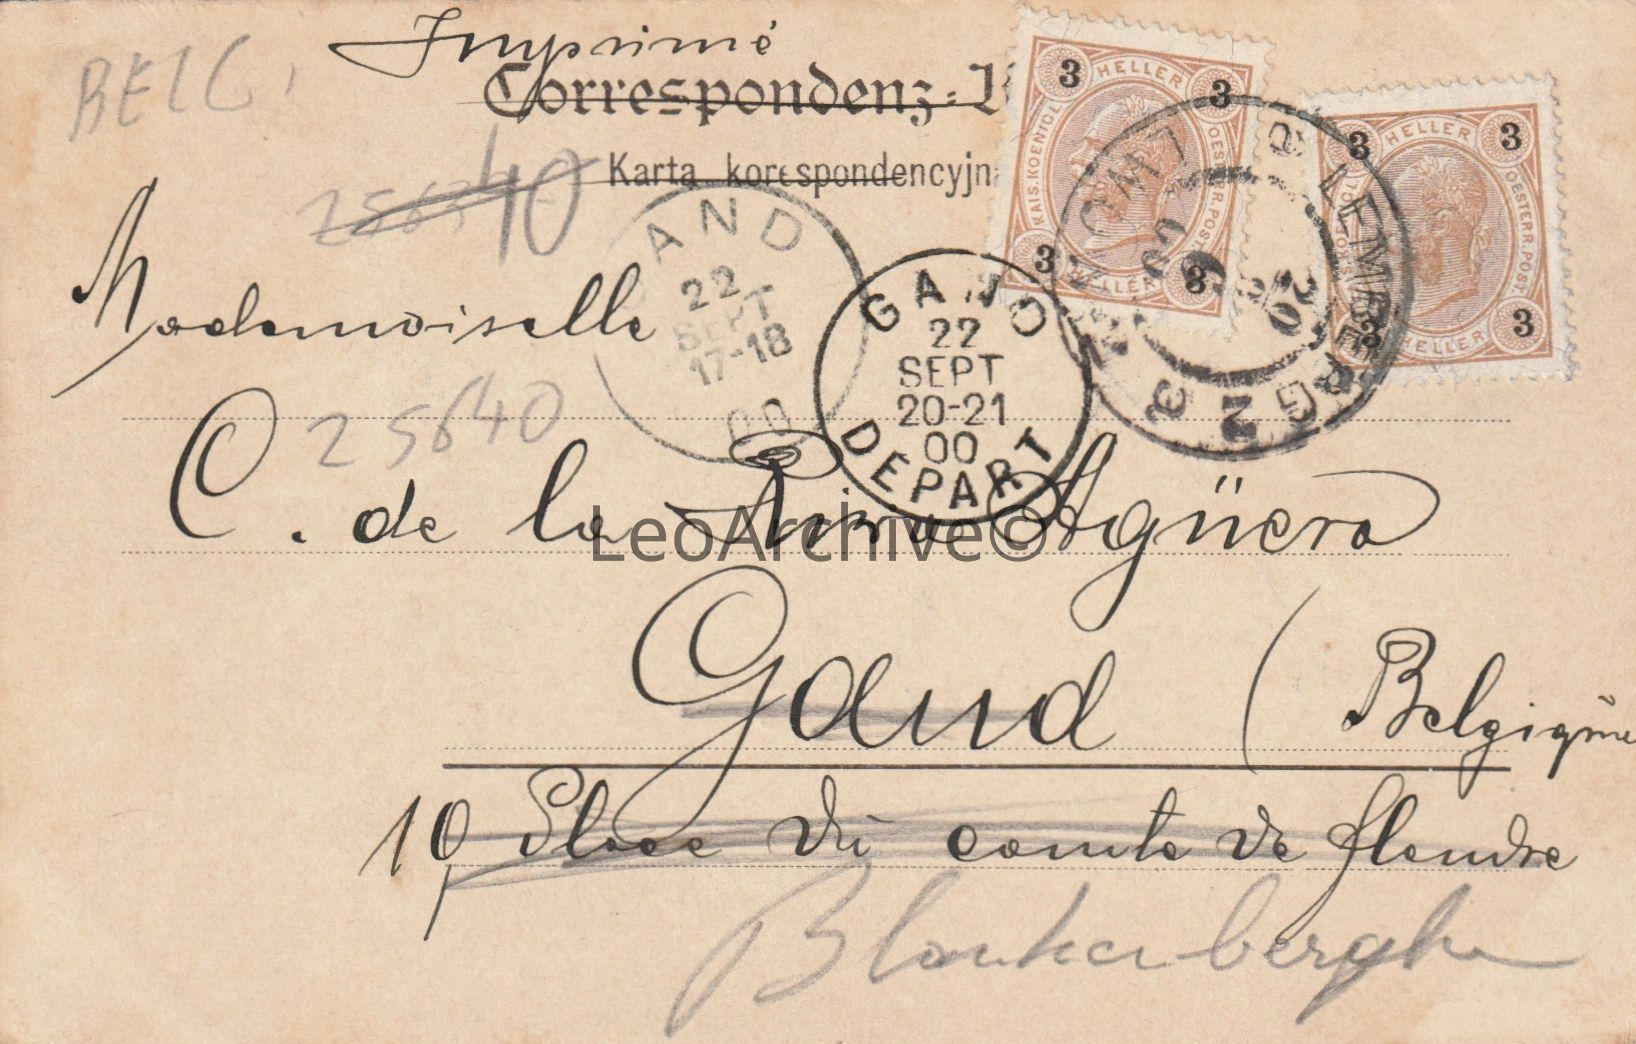 BELG.
Imprimé
Correspondenz-
Karta korespondencyjna
25640
Mademoiselle
25640
C. de la Agüera
Gand (Belgique
10, Place du comte de flandre
Blankenberghe
3 HELLER 3
KAIS. KOENIGL. OESTERR. POST.
3 HELLER 3
3 HELLER 3
KAIS. KOENIGL. OESTERR. POST.
3 HELLER 3
LEMBERG 2
LWÓW 2
20 9 00
GAND
22
SEPT
17-18
00
GAND
22
SEPT
20-21
00
DEPART
LeoArchive©